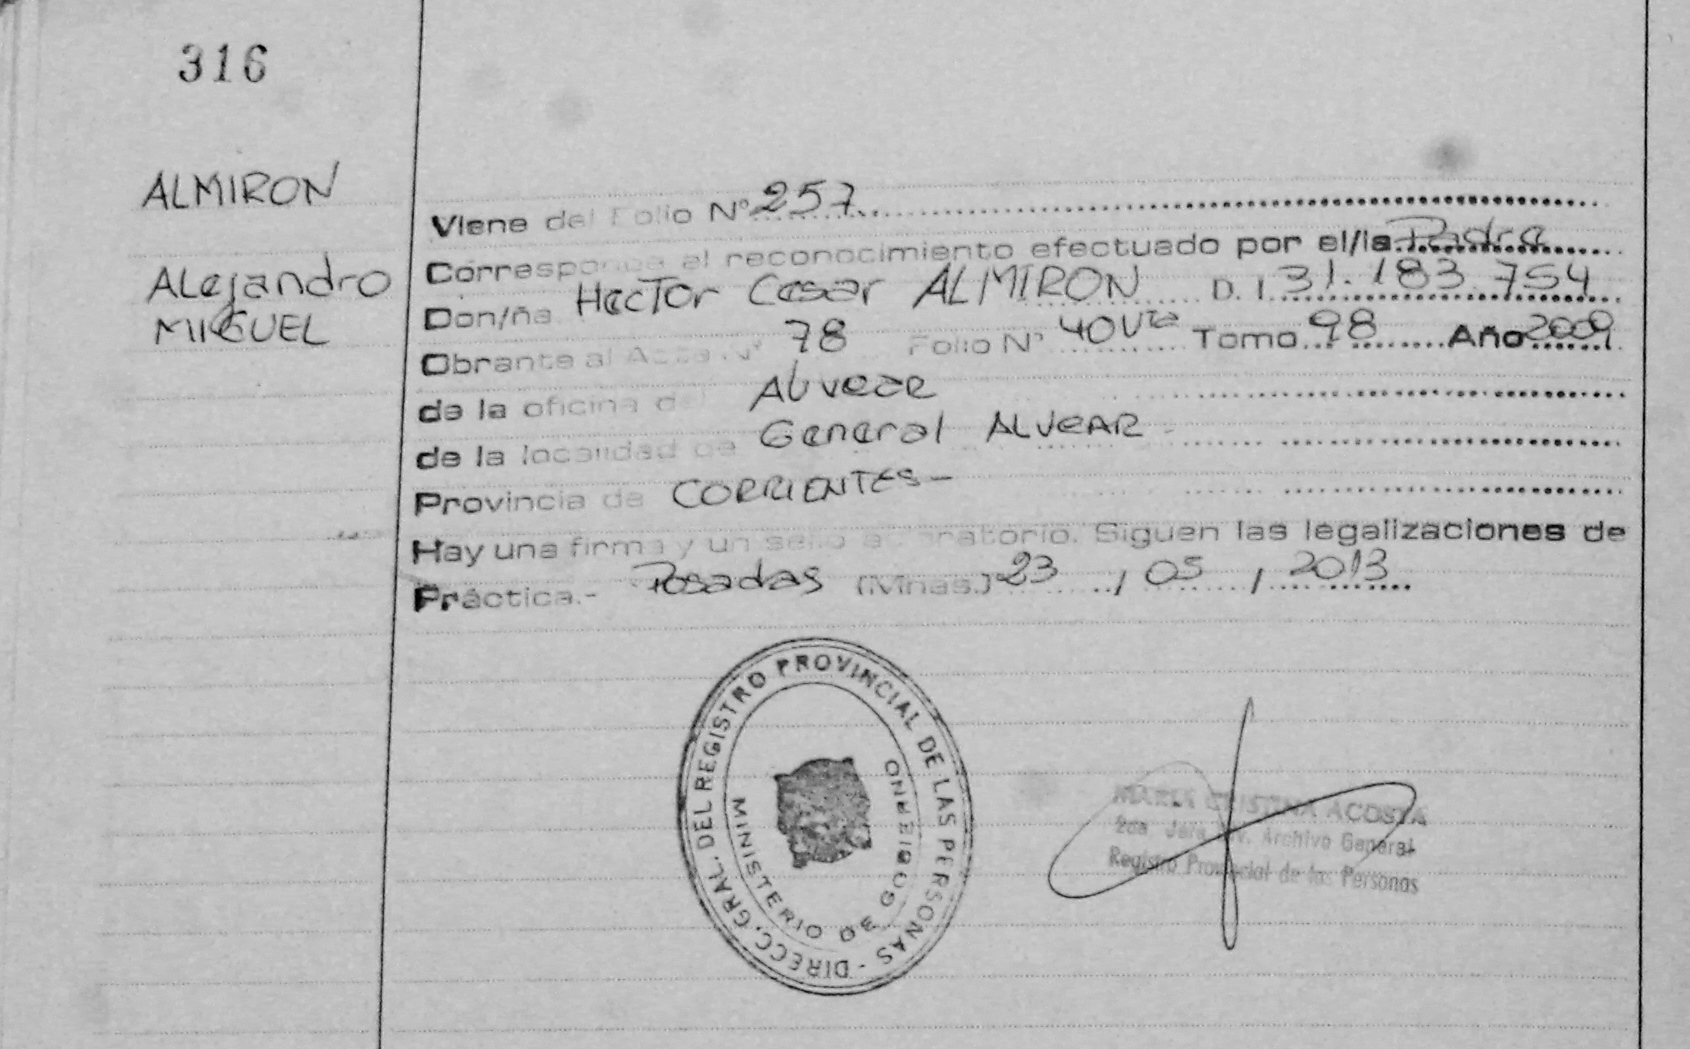 316
ALMIRON
Alejandro
MIGUEL
Viene del Folio Nº 257
Corresponde al reconocimiento efectuado por el/la Padre
Don/ña Hector Cesar ALMIRON D. I. 31.183.754
Obrante al Acta Nº 78 Folio Nº 40 Vta Tomo 98 Año 2009
de la oficina del Alvear
de la localidad de General ALVEAR -
Provincia de CORRIENTES -
Hay una firma y un sello aclaratorio. Siguen las legalizaciones de
Práctica.- Posadas (Mnes.) 23 / 05 / 2013
DIRECC. GRAL. DEL REGISTRO PROVINCIAL DE LAS PERSONAS -
MINISTERIO DE GOBIERNO
MARIA CRISTINA ACOSTA
2da Jefa Archivo General
Registro Provincial de las Personas